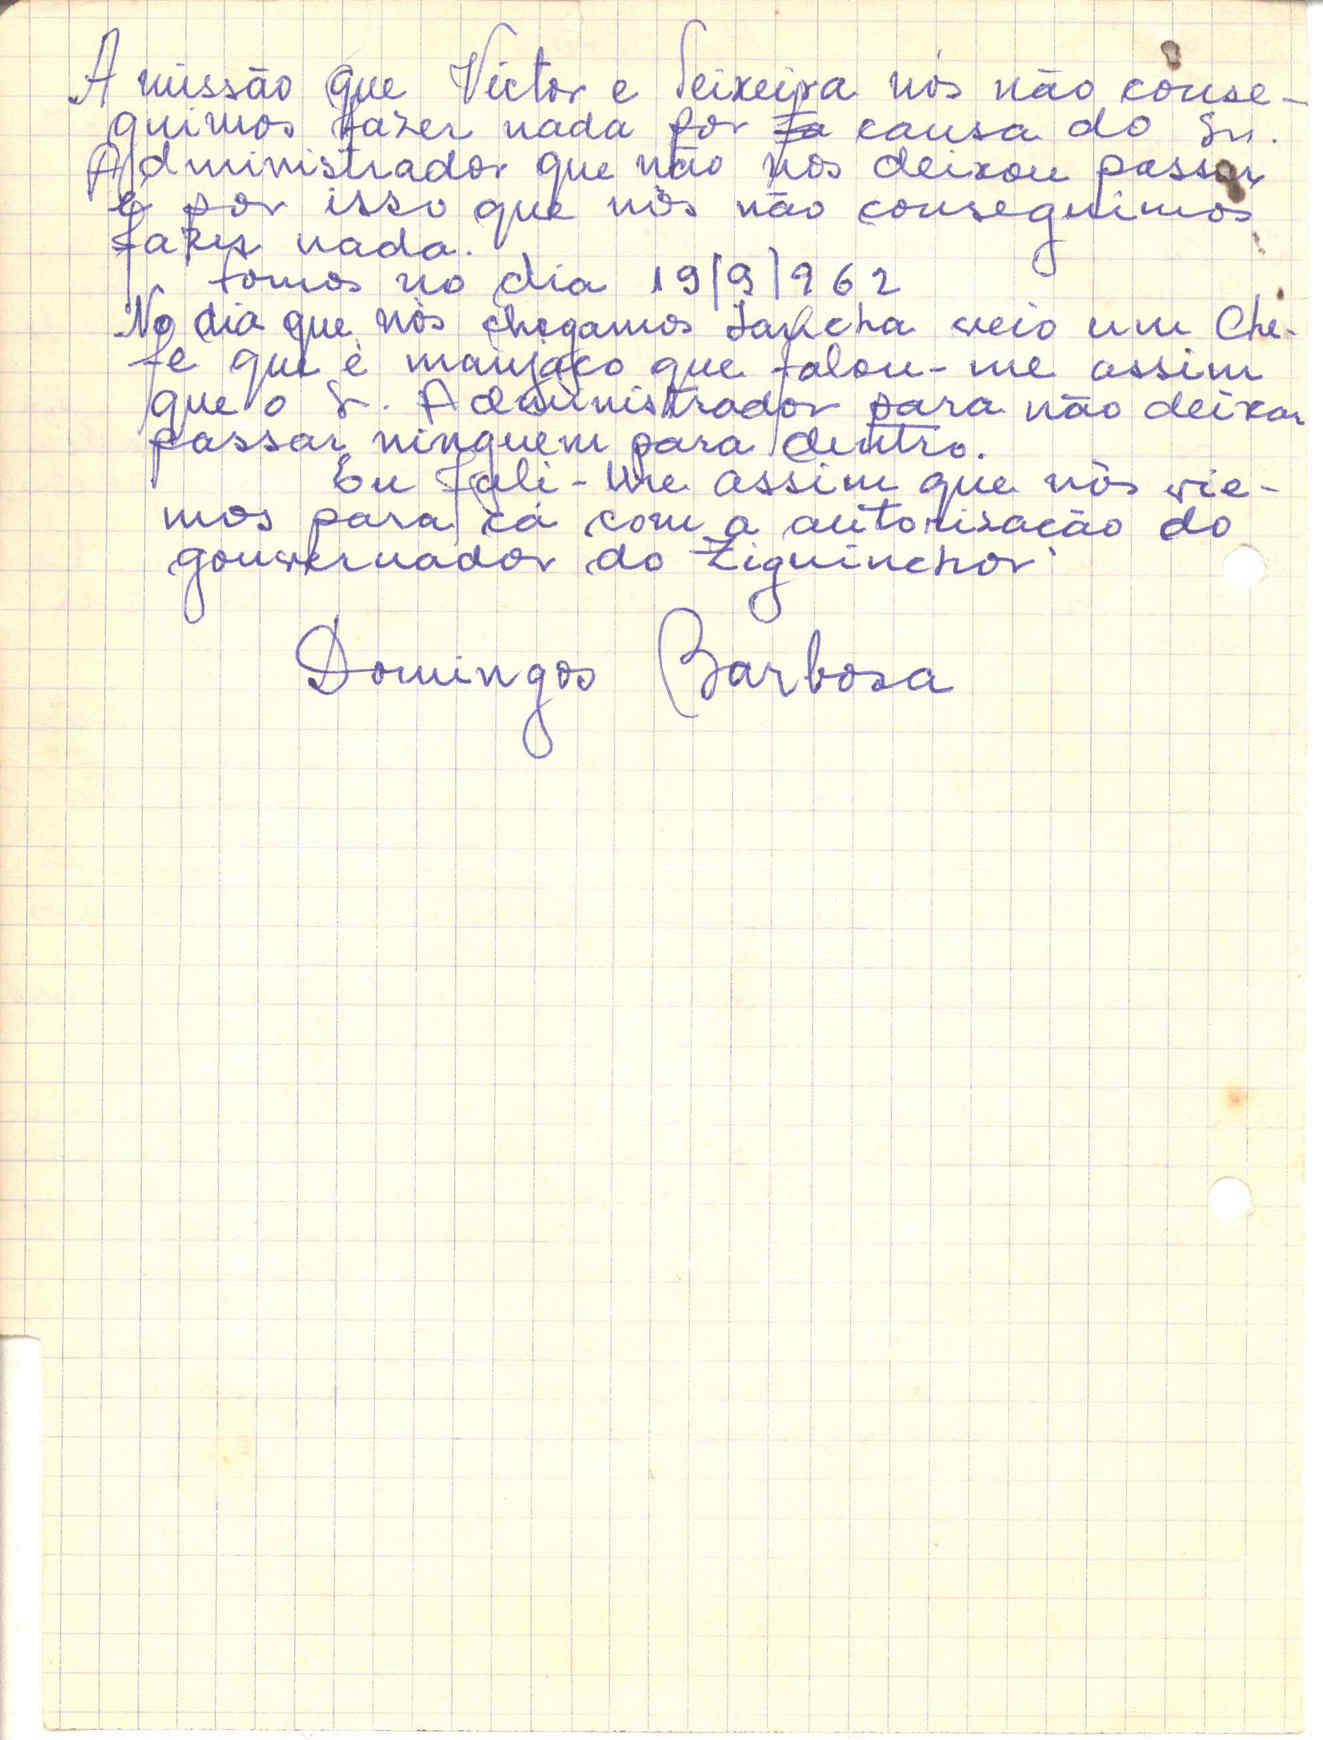 A missão que Victor e Teixeira nós não conse-
guimos fazer nada por fa causa do Sr.
Administrador que não nos deixou passar
e por isso que nós não conseguimos
fazer nada.
fomos no dia 19/9/962
No dia que nós chegamos veio um Che-
fe que é manjaco que falou-me assim
que o Sr. Administrador para não deixar
passar ninguem para dentro.
Eu fali-lhe assim que nós vie-
mos para cá com a autorisacão do
gouvernador do Ziguinchor
Domingos Barbosa